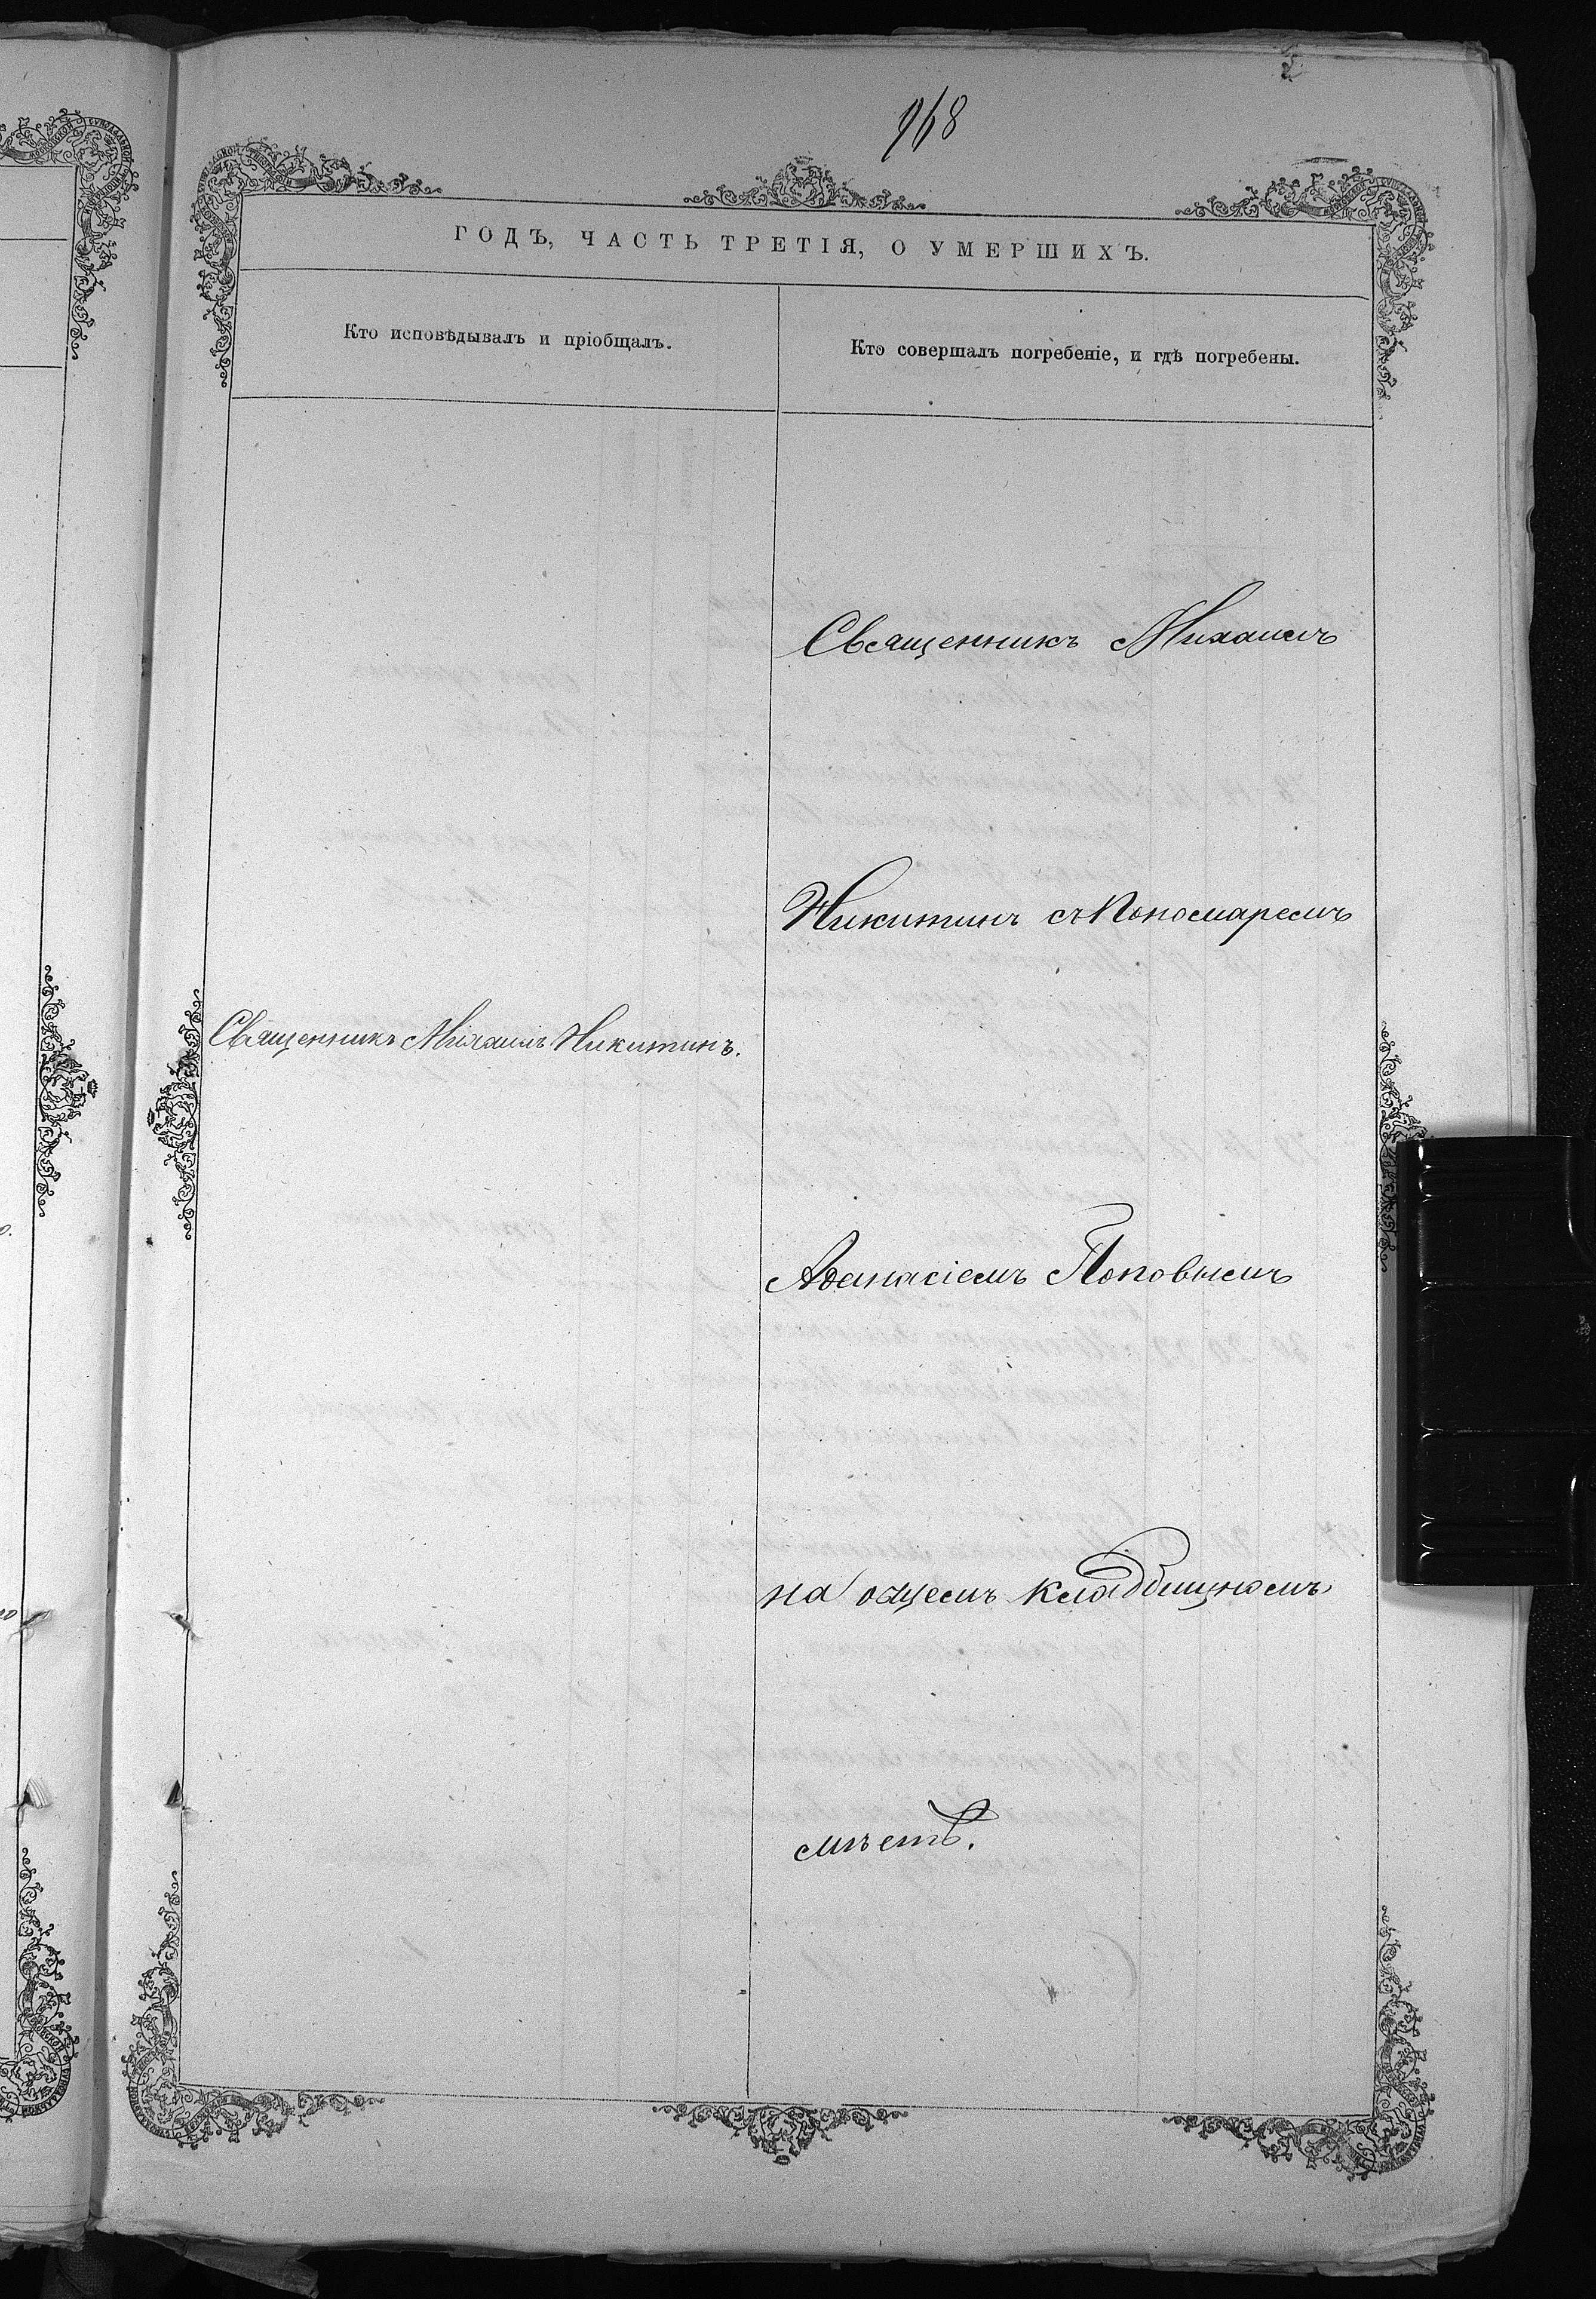 968
ГОДЪ, ЧАСТЬ ТРЕТІЯ, О УМЕРШИХЪ.
Кто исповѣдывалъ и пріобщалъ.
Кто совершалъ погребеніе, и гдѣ погребены.
Священникъ Михаилъ Никитинъ.
Священникъ Михаилъ
Никитинъ съ Пономаремъ
Аѳанасіемъ Поповымъ
на общемъ кладбищномъ
мѣстѣ.